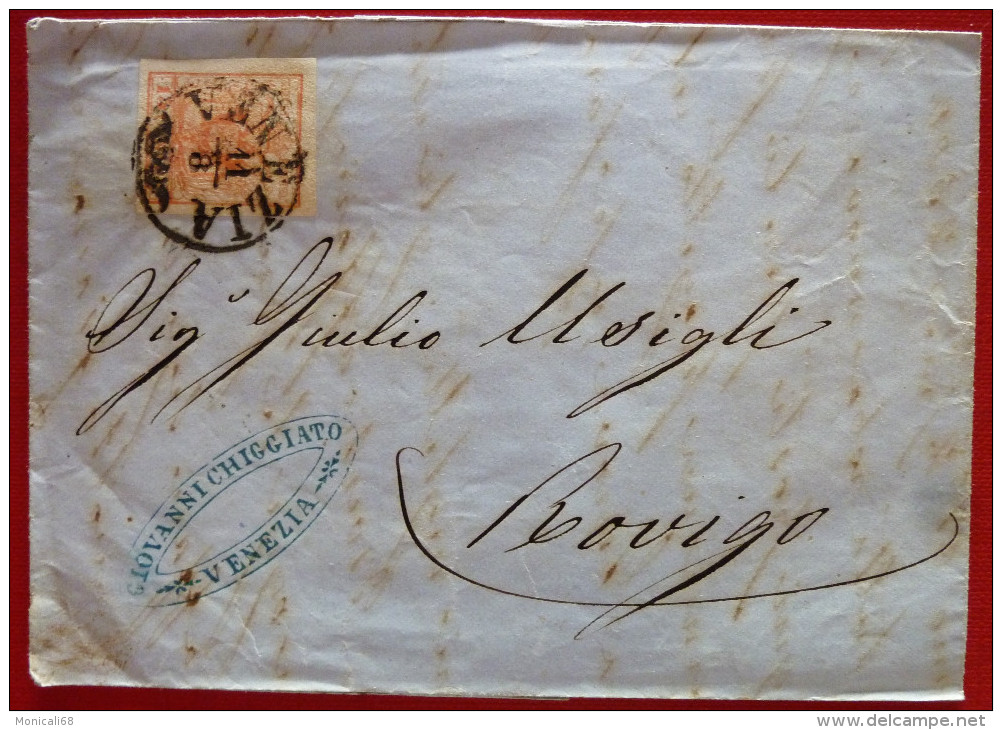 VENEZIA
11
8
Sigr Giulio Usigli
Rovigo
GIOVANNI CHIGGIATO
VENEZIA
Monicali68
www.delcampe.net